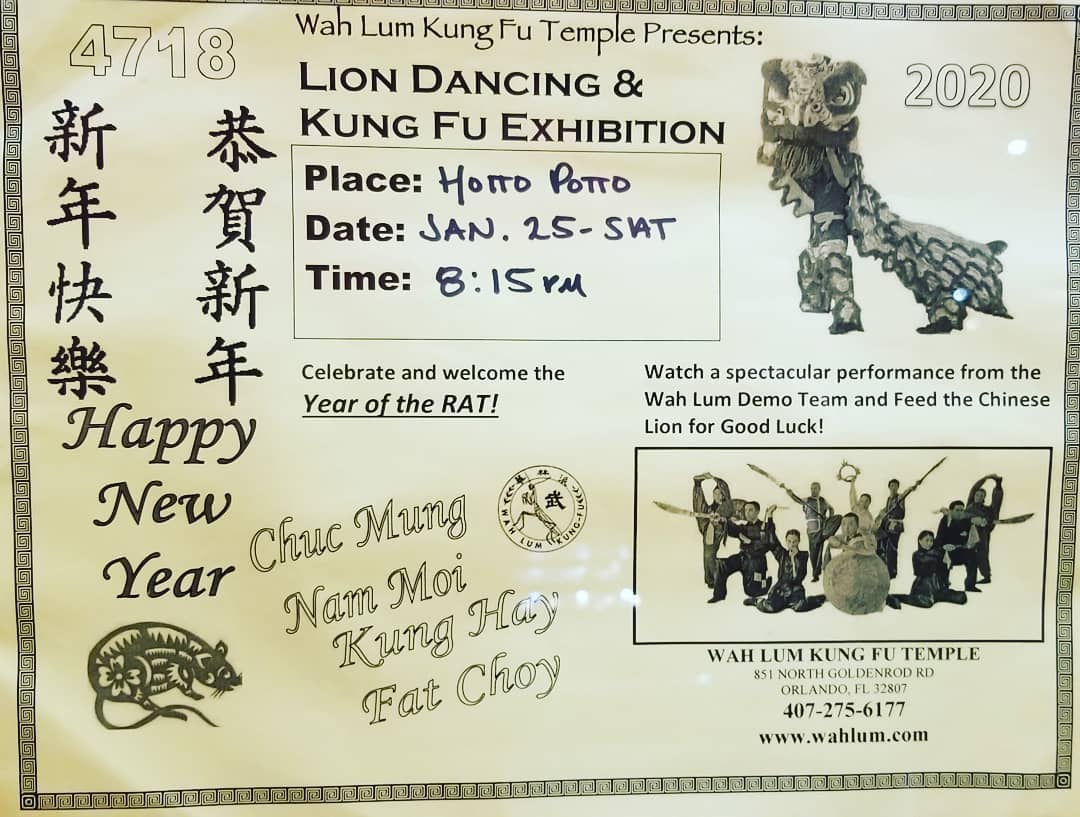 4718
新年快樂
恭賀新年
Happy
New
Year
Wah Lum Kung Fu Temple Presents:
LION DANCING &
KUNG FU EXHIBITION
2020
Place: HOTTO POTTO
Date: JAN. 25-SAT
Time: 8:15PM
Celebrate and welcome the
Year of the RAT!
Watch a spectacular performance from the
Wah Lum Demo Team and Feed the Chinese
Lion for Good Luck!
Chuc Mung
Nam Moi
Kung Hay
Fat Choy
武
WAH LUM KUNG-FU
WAH LUM KUNG FU TEMPLE
851 NORTH GOLDENROD RD
ORLANDO, FL 32807
407-275-6177
www.wahlum.com